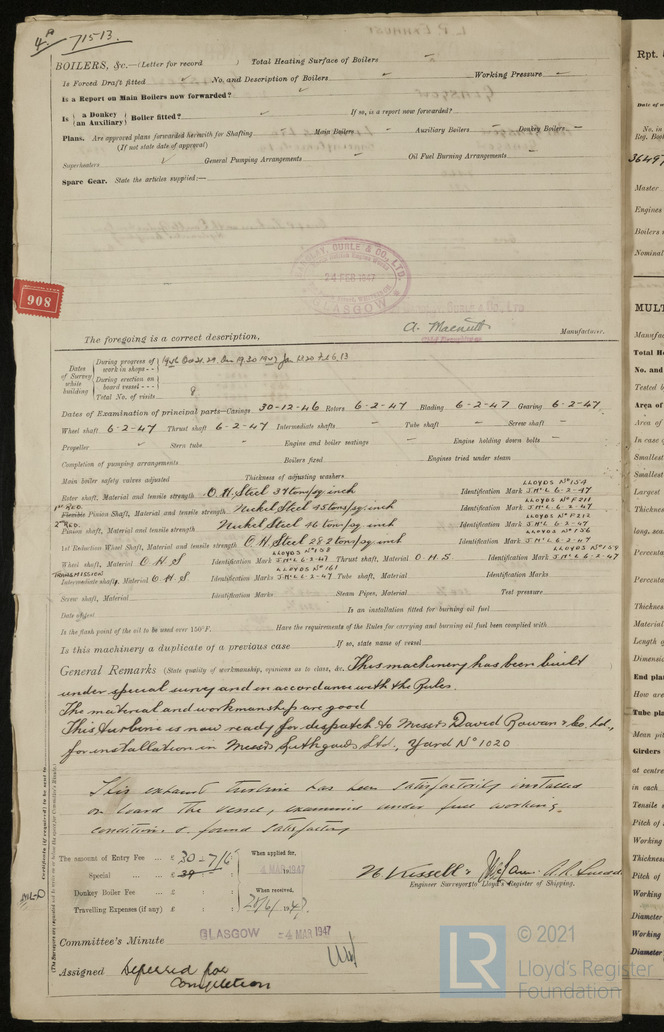 4a 71513.
BOILERS, &c.—(Letter for record ) Total Heating Surface of Boilers
Is Forced Draft fitted No. and Description of Boilers Working Pressure
Is a Report on Main Boilers now forwarded?
Is { a Donkey / an Auxiliary } Boiler fitted? If so, is a report now forwarded?
Plans. Are approved plans forwarded herewith for Shafting Main Boilers Auxiliary Boilers Donkey Boilers
(If not state date of approval)
Superheaters General Pumping Arrangements Oil Fuel Burning Arrangements
Spare Gear. State the articles supplied:—
BARCLAY, CURLE & CO., LTD.
24 FEB 1947
GLASGOW
908
The foregoing is a correct description,
Manufacturer.
Dates of Survey while building
During progress of work in shops - -
During erection on board vessel - - -
Total No. of visits 8
Dates of Examination of principal parts—Casings 30-12-46 Rotors 6-2-47 Blading 6-2-47 Gearing 6-2-47
Wheel shaft 6-2-47 Thrust shaft 6-2-47 Intermediate shafts Tube shaft Screw shaft
Propeller Stern tube Engine and boiler seatings Engine holding down bolts
Completion of pumping arrangements Boilers fixed Engines tried under steam
Main boiler safety valves adjusted Thickness of adjusting washers
LLOYDS No 154
Rotor shaft, Material and tensile strength O.H. Steel 34 tons/sq. inch Identification Mark J.McL 6-2-47
1st RED. LLOYDS No F211
Flexible Pinion Shaft, Material and tensile strength Nickel Steel 45 tons/sq. inch Identification Mark J.McL 6-2-47
2nd RED. LLOYDS No F212
Pinion shaft, Material and tensile strength Nickel Steel 46 tons/sq. inch Identification Mark J.McL 6-2-47
LLOYDS No 156
1st Reduction Wheel Shaft, Material and tensile strength O.H. Steel 28.2 tons/sq. inch Identification Mark J.McL 6-2-47
LLOYDS No 159
Wheel shaft, Material O.H.S Identification Mark J.McL 6-2-47 Thrust shaft, Material O.H.S. Identification Mark J.McL 6-2-47
TRANSMISSION LLOYDS No 161
Intermediate shaft, Material O.H.S Identification Marks J.McL 6-2-47 Tube shaft, Material Identification Marks
Screw shaft, Material Identification Marks Steam Pipes, Material Test pressure
Date of test Is an installation fitted for burning oil fuel
Is the flash point of the oil to be used over 150°F. Have the requirements of the Rules for carrying and burning oil fuel been complied with
Is this machinery a duplicate of a previous case If so, state name of vessel
General Remarks (State quality of workmanship, opinions as to class, &c. This machinery has been built
under special survey and in accordance with the Rules.
The material and workmanship are good
This turbine is now ready for despatch to Messrs David Rowan & Co. Ltd.,
for installation in Messrs Lithgows Ltd., Yard No 1020
This exhaust turbine has been satisfactorily installed
on board the vessel, examined under full working
conditions & found satisfactory
The amount of Entry Fee ... £ 30-7/6 When applied for,
Special ... ... £ 4 MAR 1947
Donkey Boiler Fee ... £ : : When received,
Travelling Expenses (if any) £ : :
Engineer Surveyors to Lloyd's Register of Shipping.
Committee's Minute GLASGOW 4 MAR 1947
Assigned Deferred for
Completion
© 2021
LR
Lloyd's Register
Foundation
Rpt.
Reg. Book
Master
Engines
Boilers
Nominal
MULT
No. and
Area of
In case
Smallest
Smallest
Largest
Thickness
long. sea
Thickness
Material
Length of
End pla
How are
Tube pla
Mean pit
Girders
at centre
in each
Tensile s
Pitch of
Working
Thickness
Pitch of
Working
Diameter
Working
Diameter